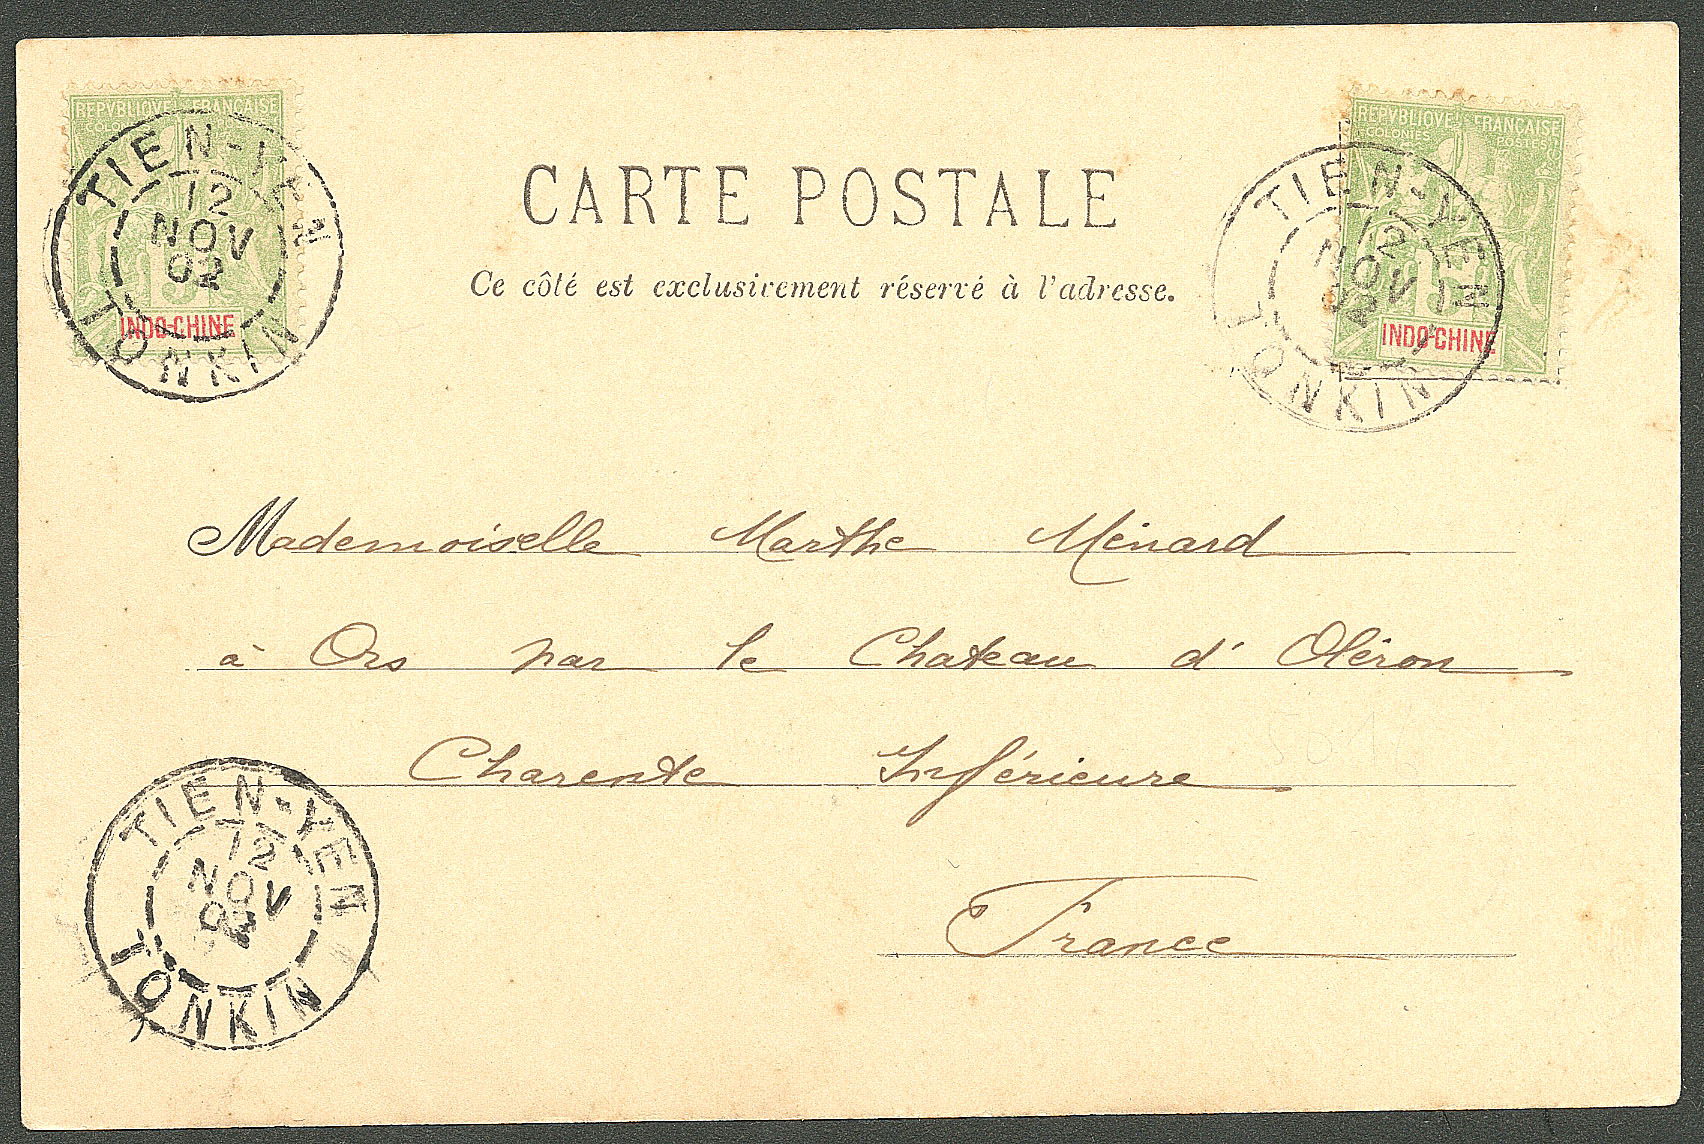 REPVBLIQVE FRANÇAISE
COLONIES
5
INDO-CHINE
TIEN-YEN
12
NOV
02
TONKIN
CARTE POSTALE
Ce côté est exclusivement réservé à l'adresse.
REPVBLIQVE FRANÇAISE
COLONIES POSTES
5
INDO-CHINE
TIEN-YEN
12
NOV
02
TONKIN
Mademoiselle Marthe Ménard
à Ors par le Chateau d'Oléron
Charente Inférieure
France
TIEN-YEN
12
NOV
02
TONKIN